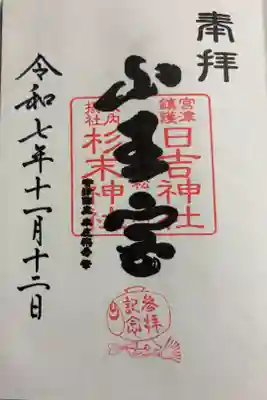 奉拝
宮津
鎮護
日吉神社
山王宮
境内
摂社
杉末神社
令和七年十一月十二日
参拝
記念